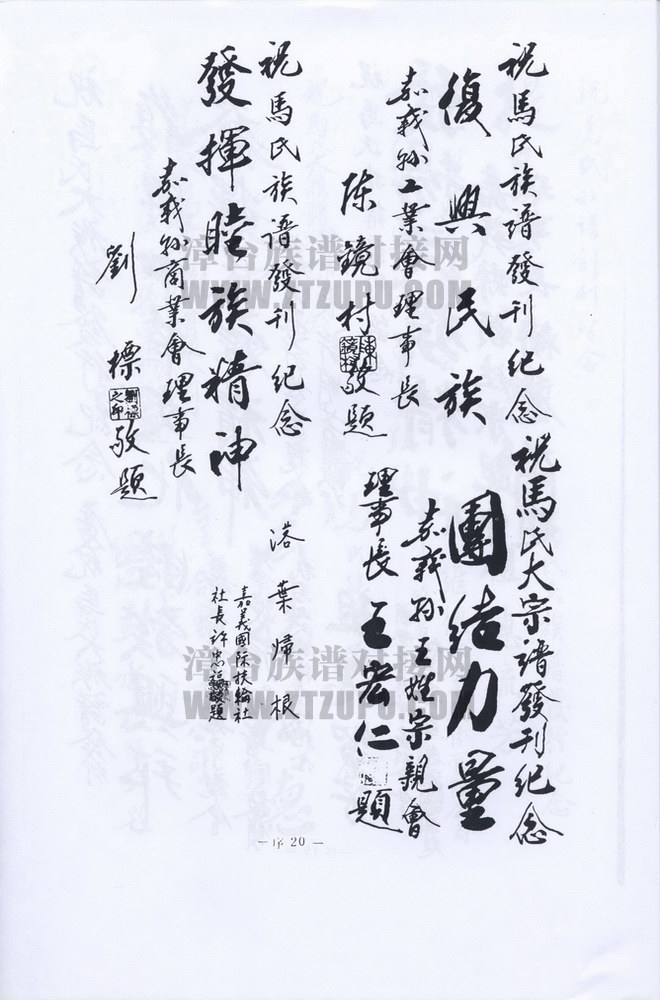 祝馬氏族譜發刊紀念
復興民族
嘉義縣工業會理事長
陳鏡村
敬題
祝馬氏族譜發刊紀念
發揮睦族精神
嘉義縣商業會理事長
劉標
敬題
祝馬氏大宗譜發刊紀念
團結力量
嘉義縣王姓宗親會
理事長 王宏仁
題
落葉歸根
嘉義國際扶輪社
社長許忠 敬題
—序 20 —
漳台族谱对接网
WWW.ZTZUPU.COM
漳台族谱对接网
WWW.ZTZUPU.COM